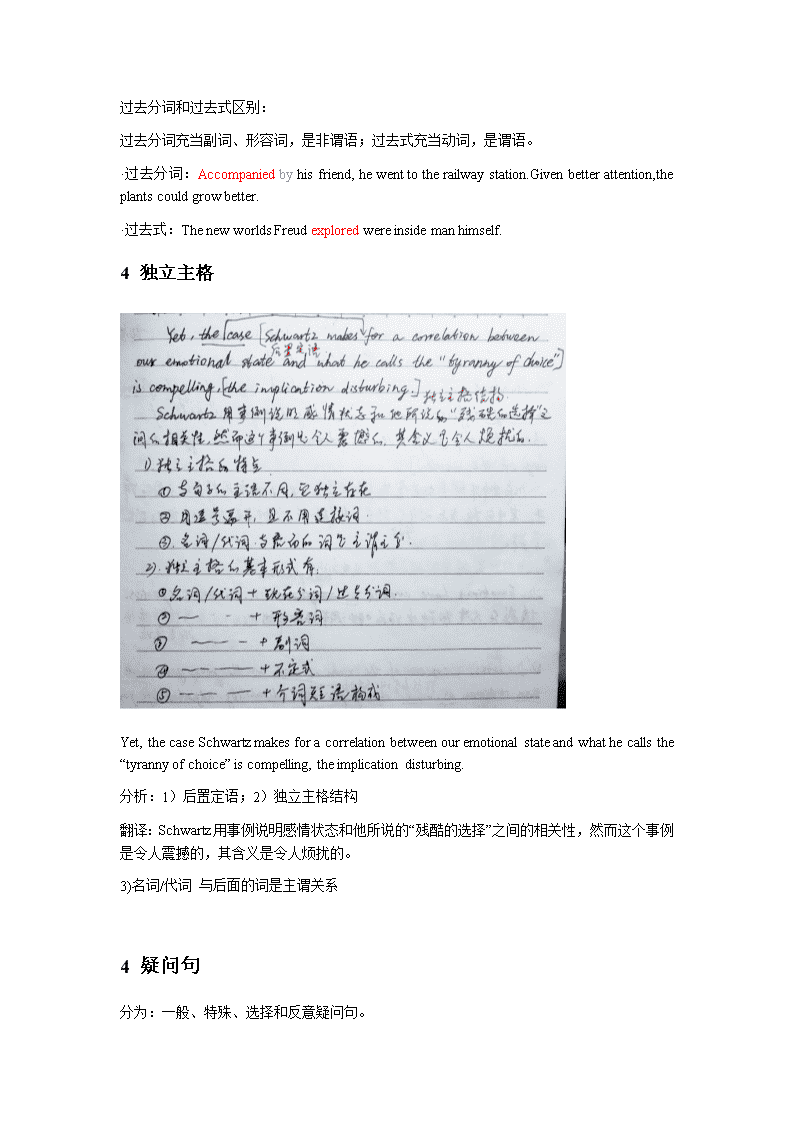 过去分词和过去式区别：
过去分词充当副词、形容词，是非谓语；过去式充当动词，是谓语。
·过去分词：Accompanied by his friend, he went to the railway station.Given better attention,the
plants could grow better.
·过去式：The new worlds Freud explored were inside man himself.
4 独立主格
Yet, the case [Schwartz makes for a correlation between
后置定语
our emotional state and what he calls the “tyranny of choice”]
is compelling, [the implication disturbing.] 独立主格结构
Schwartz 用事例说明感情状态和他所说的“残酷的选择”之
间的相关性，然而这个事例是令人震撼的，其含义是令人烦扰的。
1) 独立主格的特点
① 与句子的主语不同，它独立存在
② 用逗号离开，且不用连接词.
③. 名词/代词 与后面的词是主谓关系.
2). 独立主格的基本形式有:
①名词/代词 + 现在分词/过去分词.
② — - + 形容词
③ ——— - + 副词
④ ———— + 不定式
⑤ — — — + 介词短语构成
Yet, the case Schwartz makes for a correlation between our emotional state and what he calls the
“tyranny of choice” is compelling, the implication disturbing.
分析：1）后置定语；2）独立主格结构
翻译：Schwartz 用事例说明感情状态和他所说的“残酷的选择”之间的相关性，然而这个事例
是令人震撼的，其含义是令人烦扰的。
3)名词/代词 与后面的词是主谓关系
4 疑问句
分为：一般、特殊、选择和反意疑问句。